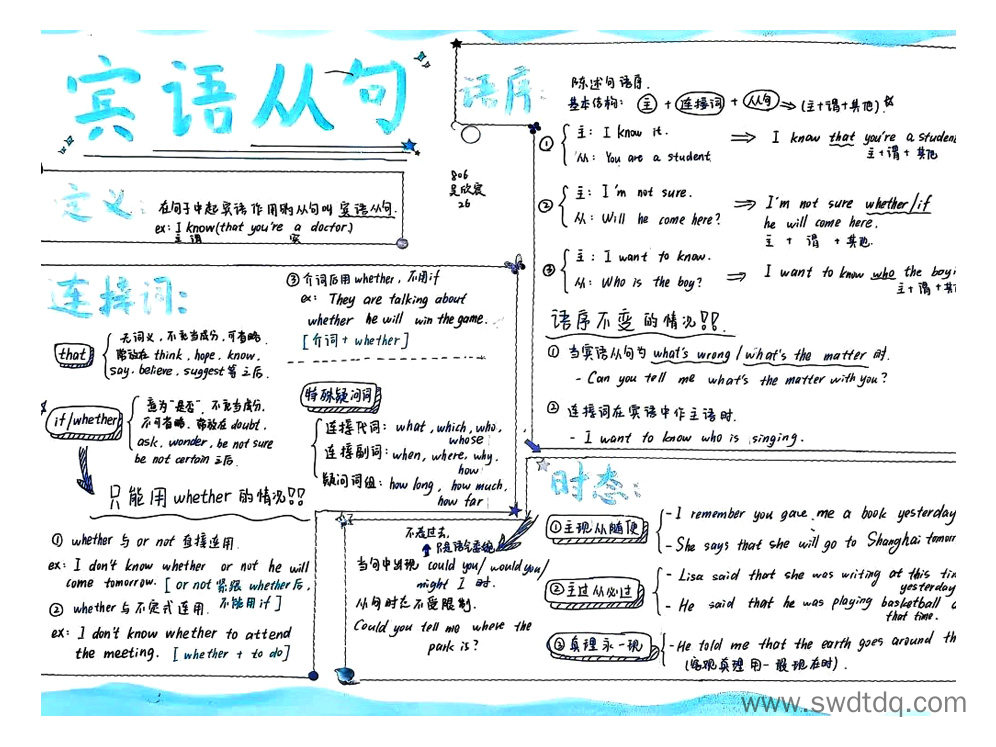 宾语从句
806
吴欣宸
26
定义:
在句子中起宾语作用的从句叫宾语从句.
ex: I know(that you're a doctor.)
主 谓 宾
连接词:
that
无词义, 不充当成分, 可省略.
常放在 think, hope, know,
say, believe, suggest等之后.
if/whether
意为"是否". 不充当成分.
不可省略. 常放在doubt,
ask, wonder, be not sure
be not certain 之后.
只能用whether的情况!!
① whether 与 or not 直接连用.
ex: I don't know whether or not he will
come tomorrow. [or not 紧跟 whether后,
不能用if]
② whether与不定式连用.
ex: I don't know whether to attend
the meeting. [whether + to do]
③ 介词后用whether, 不用if
ex: They are talking about
whether he will win the game.
[介词 + whether]
特殊疑问词
连接代词: what, which, who,
whose
连接副词: when, where, why,
how
疑问词组: how long, how much,
how far
语序:
陈述句语序.
基本结构: 主 + 连接词 + 从句 ⇒ (主+谓+其他)
① 主: I know it.
从: You are a student.
⇒ I know that you're a student
主+谓+其他
② 主: I'm not sure.
从: Will he come here?
⇒ I'm not sure whether/if
he will come here.
主 + 谓 + 其他.
③ 主: I want to know.
从: Who is the boy?
⇒ I want to know who the boy
主+谓+其
语序不变的情况!!.
① 当宾语从句为what's wrong / what's the matter 时.
- Can you tell me what's the matter with you?
② 连接词在宾语中作主语时.
- I want to know who is singing.
时态:
① 主现从随便
- I remember you gave me a book yesterday
- She says that she will go to Shanghai tomorr
② 主过从必过
- Lisa said that she was writing at this tim
yesterday
- He said that he was playing basketball a
that time.
③ 真理永一现
- He told me that the earth goes around th
(客观真理用一般现在时).
不是过去.
只是语气委婉
当句中出现 could you/would you/
might I 时.
从句时态不受限制.
Could you tell me where the
park is?
www.swdtdq.com